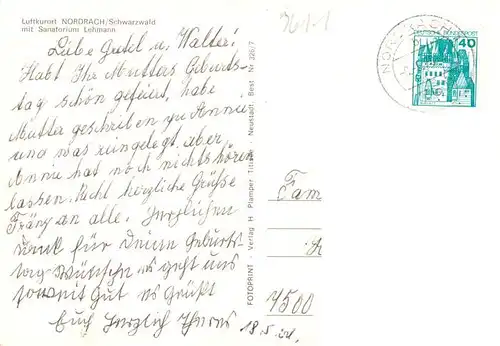 Luftkurort NORDRACH/Schwarzwald
mit Sanatorium Lehmann
Liebe Gretel u. Walter!
Habt Ihr Mutters Geburts-
tag schön gefeiert, habe
Mutter geschrieben zu Annie
und was reingelegt aber
Annie hat noch nichts hören
lassen. Recht herzliche Grüße
an alle. Herzlichen
Dank für Deine Geburts-
tag Wünsche es geht uns
soweit Gut es Grüßt
Euch Herzlich
18.5.
FOTOPRINT - Verlag H. Plamper Titisee - Neustadt Best. Nr. 326/7
40
NORDRACH
Fam
7500